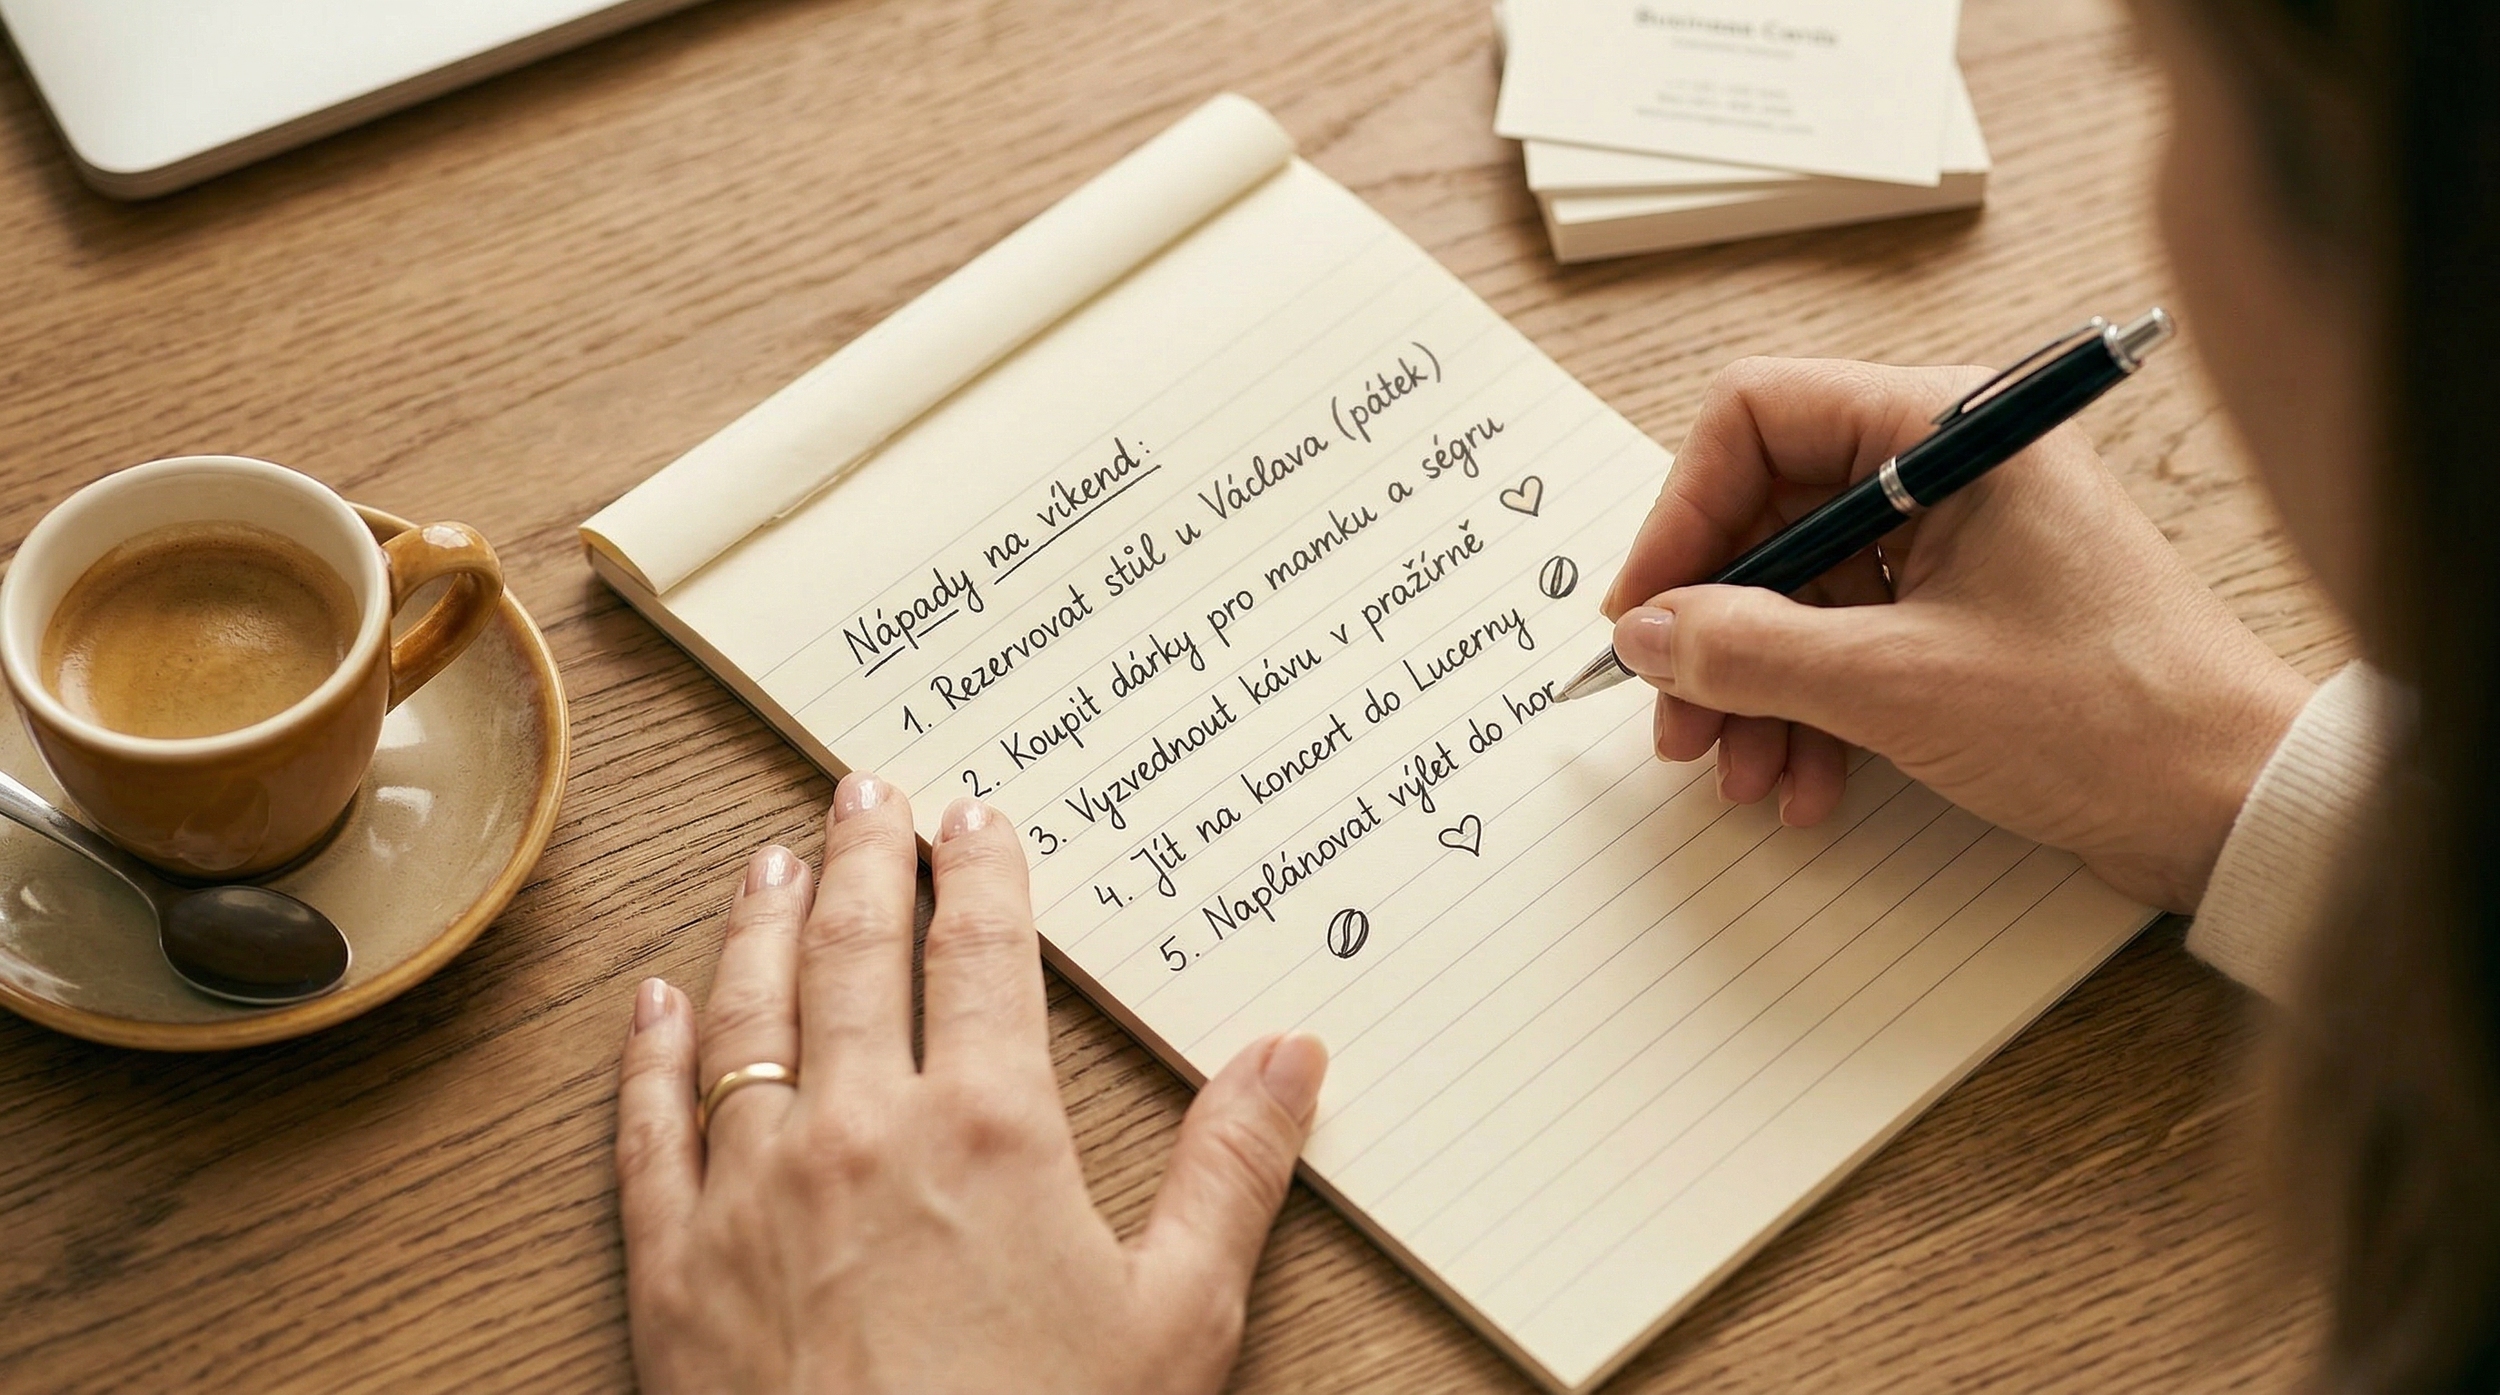 Business Cards
Nápady na víkend:
1. Rezervovat stůl u Václava (pátek)
2. Koupit dárky pro mamku a ségru
3. Vyzvednout kávu v pražírně
4. Jít na koncert do Lucerny
5. Naplánovat výlet do hor